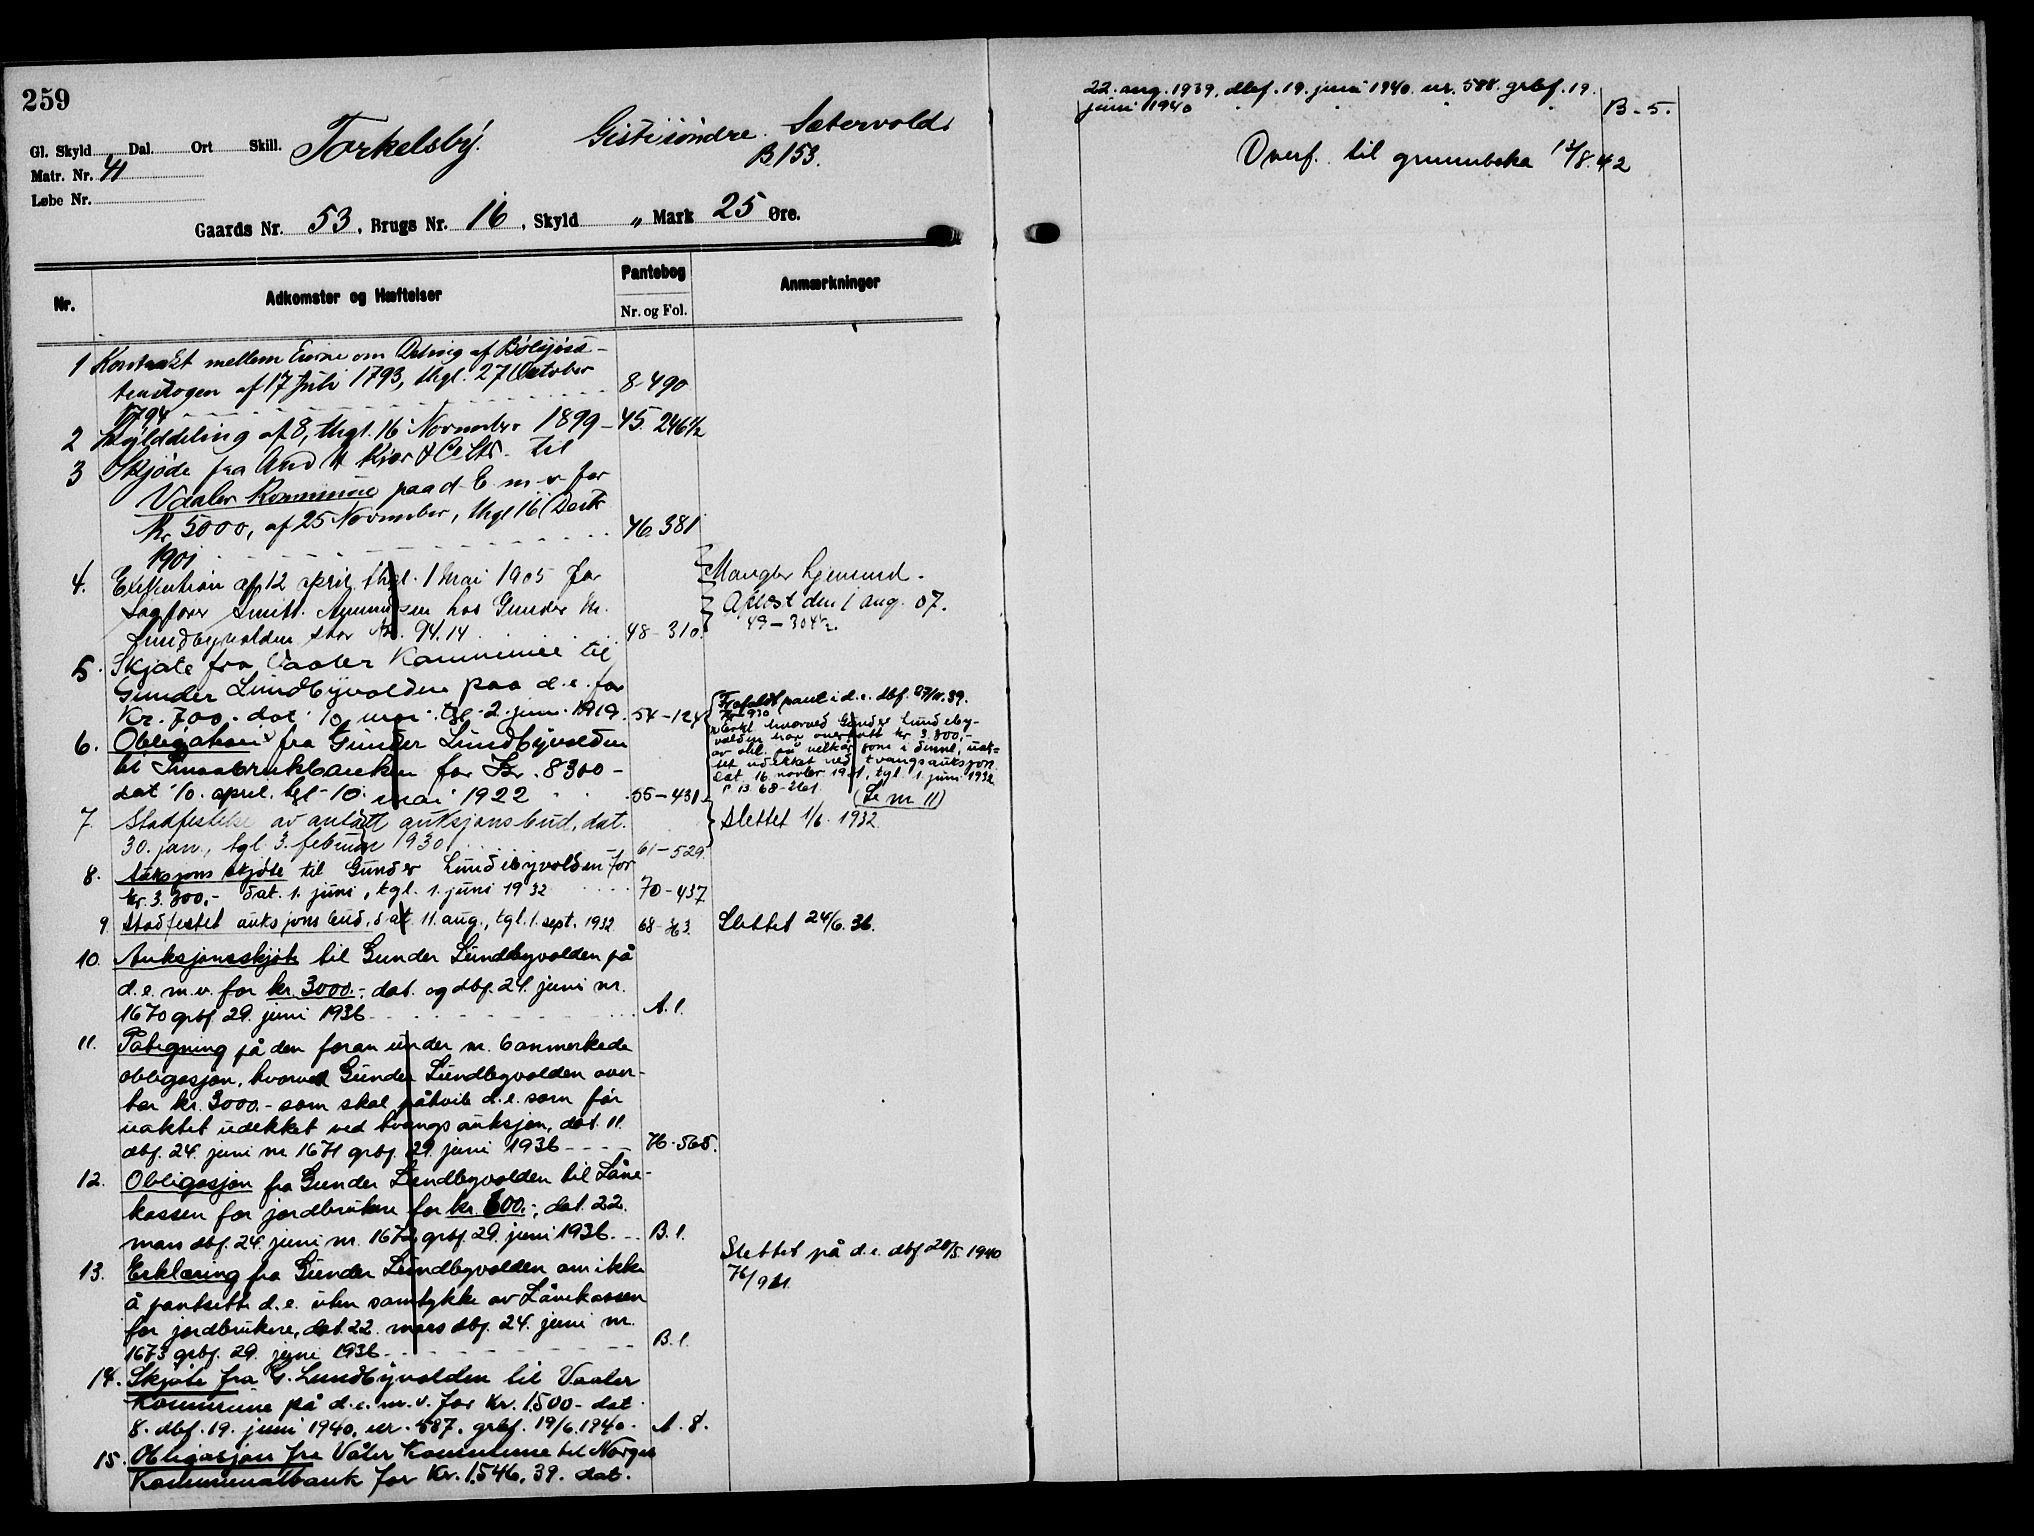 259
Gl. Skyld Dal. Ort Skill. Torkelsby. Gisti søndre Setervold
B 153.
Matr. Nr. 41
Løbe Nr.
Gaards Nr. 53, Brugs Nr. 16, Skyld „ Mark 25 Øre.
Nr. Adkomster og Hæftelser Pantebog Anmærkninger
Nr. og Fol.
1 Kontrakt mellem Eierne om Deling af
af 17 Juli 1793, thgl. 27 October
1794 8-490
2 Skylddeling af 8, thgl. 16 November 1899 - 45. 246 1/2
3 Skjøde fra And H Kiær & Co Ltd. til
Vaaler Kommune paa d. E. m. v. for
Kr 5000, af 25 November, thgl 16 Decbr
1901 46. 381
4. Exekution af 12 april thgl. 1 mai 1905 for
Sagfører Smitt. hos Gunder M.
Lundbyvolden stor Kr. 94.14 48-310.
Mangler hjemmel.
Aflæst den 1 aug. 07.
49-304 1/2
5. Skjøte fra Vaaler Kommune til
Gunder Lundbyvolden paa d. e. for
Kr. 700. dat 10 mai. tgl. 2. juni 1919. 54-124
6. Obligation fra Gunder Lundbyvolden
til Smaabrukbanken for Kr. 8300-
dat 10. april. tgl 10. mai 1922 55-431
Frafaldt pant i d. e. dbf. 27/11.39.
Nr 930
Erkl. hvorved Gunder Lundby-
volden har overtatt kr 3.800,-
av obl. på vilkår som i denne, uak-
tet udekket ved tvangsauksjon.
Dat. 16 novbr 1931, tgl. 1. juni 1932
(Se nr 11)
7. Stadfestelse av antatt auksjonsbud, dat.
30. jan., tgl. 3. februar 1930 61-529.
Slettet 1/6. 1932
8. Auksjonsskjøte til Gunder Lundbyvolden for
kr. 3.800,- dat. 1. juni, tgl. 1. juni 1932 70-437
9. Stadfestet auksjonsbud, dat. 11. aug., tgl. 1. sept. 1932 68-
Slettet 24/6. 36.
10. Auksjonsskjøte til Gunder Lundbyvolden på
d. e. m. v. for kr. 3000.-, dat. og dbf. 24. juni nr.
1670 grbf 29. juni 1936 A. 1.
11. Påtegning på den foran under nr. 6 anmerkede
obligasjon, hvorved Gunder Lundbyvolden over-
tar kr. 3000.- som skal påhvile d. e. som før
uaktet udekket ved tvangsauksjon, dat. 11.
dbf. 24. juni nr 1671 grbf. 29. juni 1936 76-565.
12. Obligasjon fra Gunder Lundbyvolden til Låne-
kassen for jordbrukere for kr. 600.-, dat. 22.
mars dbf. 24. juni nr. 1672 grbf. 29. juni 1936. B. 1.
Slettet på d. e. dbf 28/5. 1940
13. Erklæring fra Gunder Lundbyvolden om ikke
å pantsette d. e. uten samtykke av Lånekassen
for jordbrukere, dat. 22. mars dbf. 24. juni nr.
1673 grbf. 29. juni 1936 B. 1.
14. Skjøte fra G. Lundbyvolden til Vaaler
Kommune på d. e. m. v. for Kr. 1500- dat
8. dbf. 19. juni 1940. nr. 587. grbf. 19/6. 1940. A. 8.
15. Obligasjon fra Våler Kommune til Norges
Kommunalbank for Kr. 1546.39. dat.
22. aug. 1939, dbf. 19. juni 1940. nr. 588. grbf. 19.
juni 1940 B-5.
Overf. til grunnboka 12/8.42